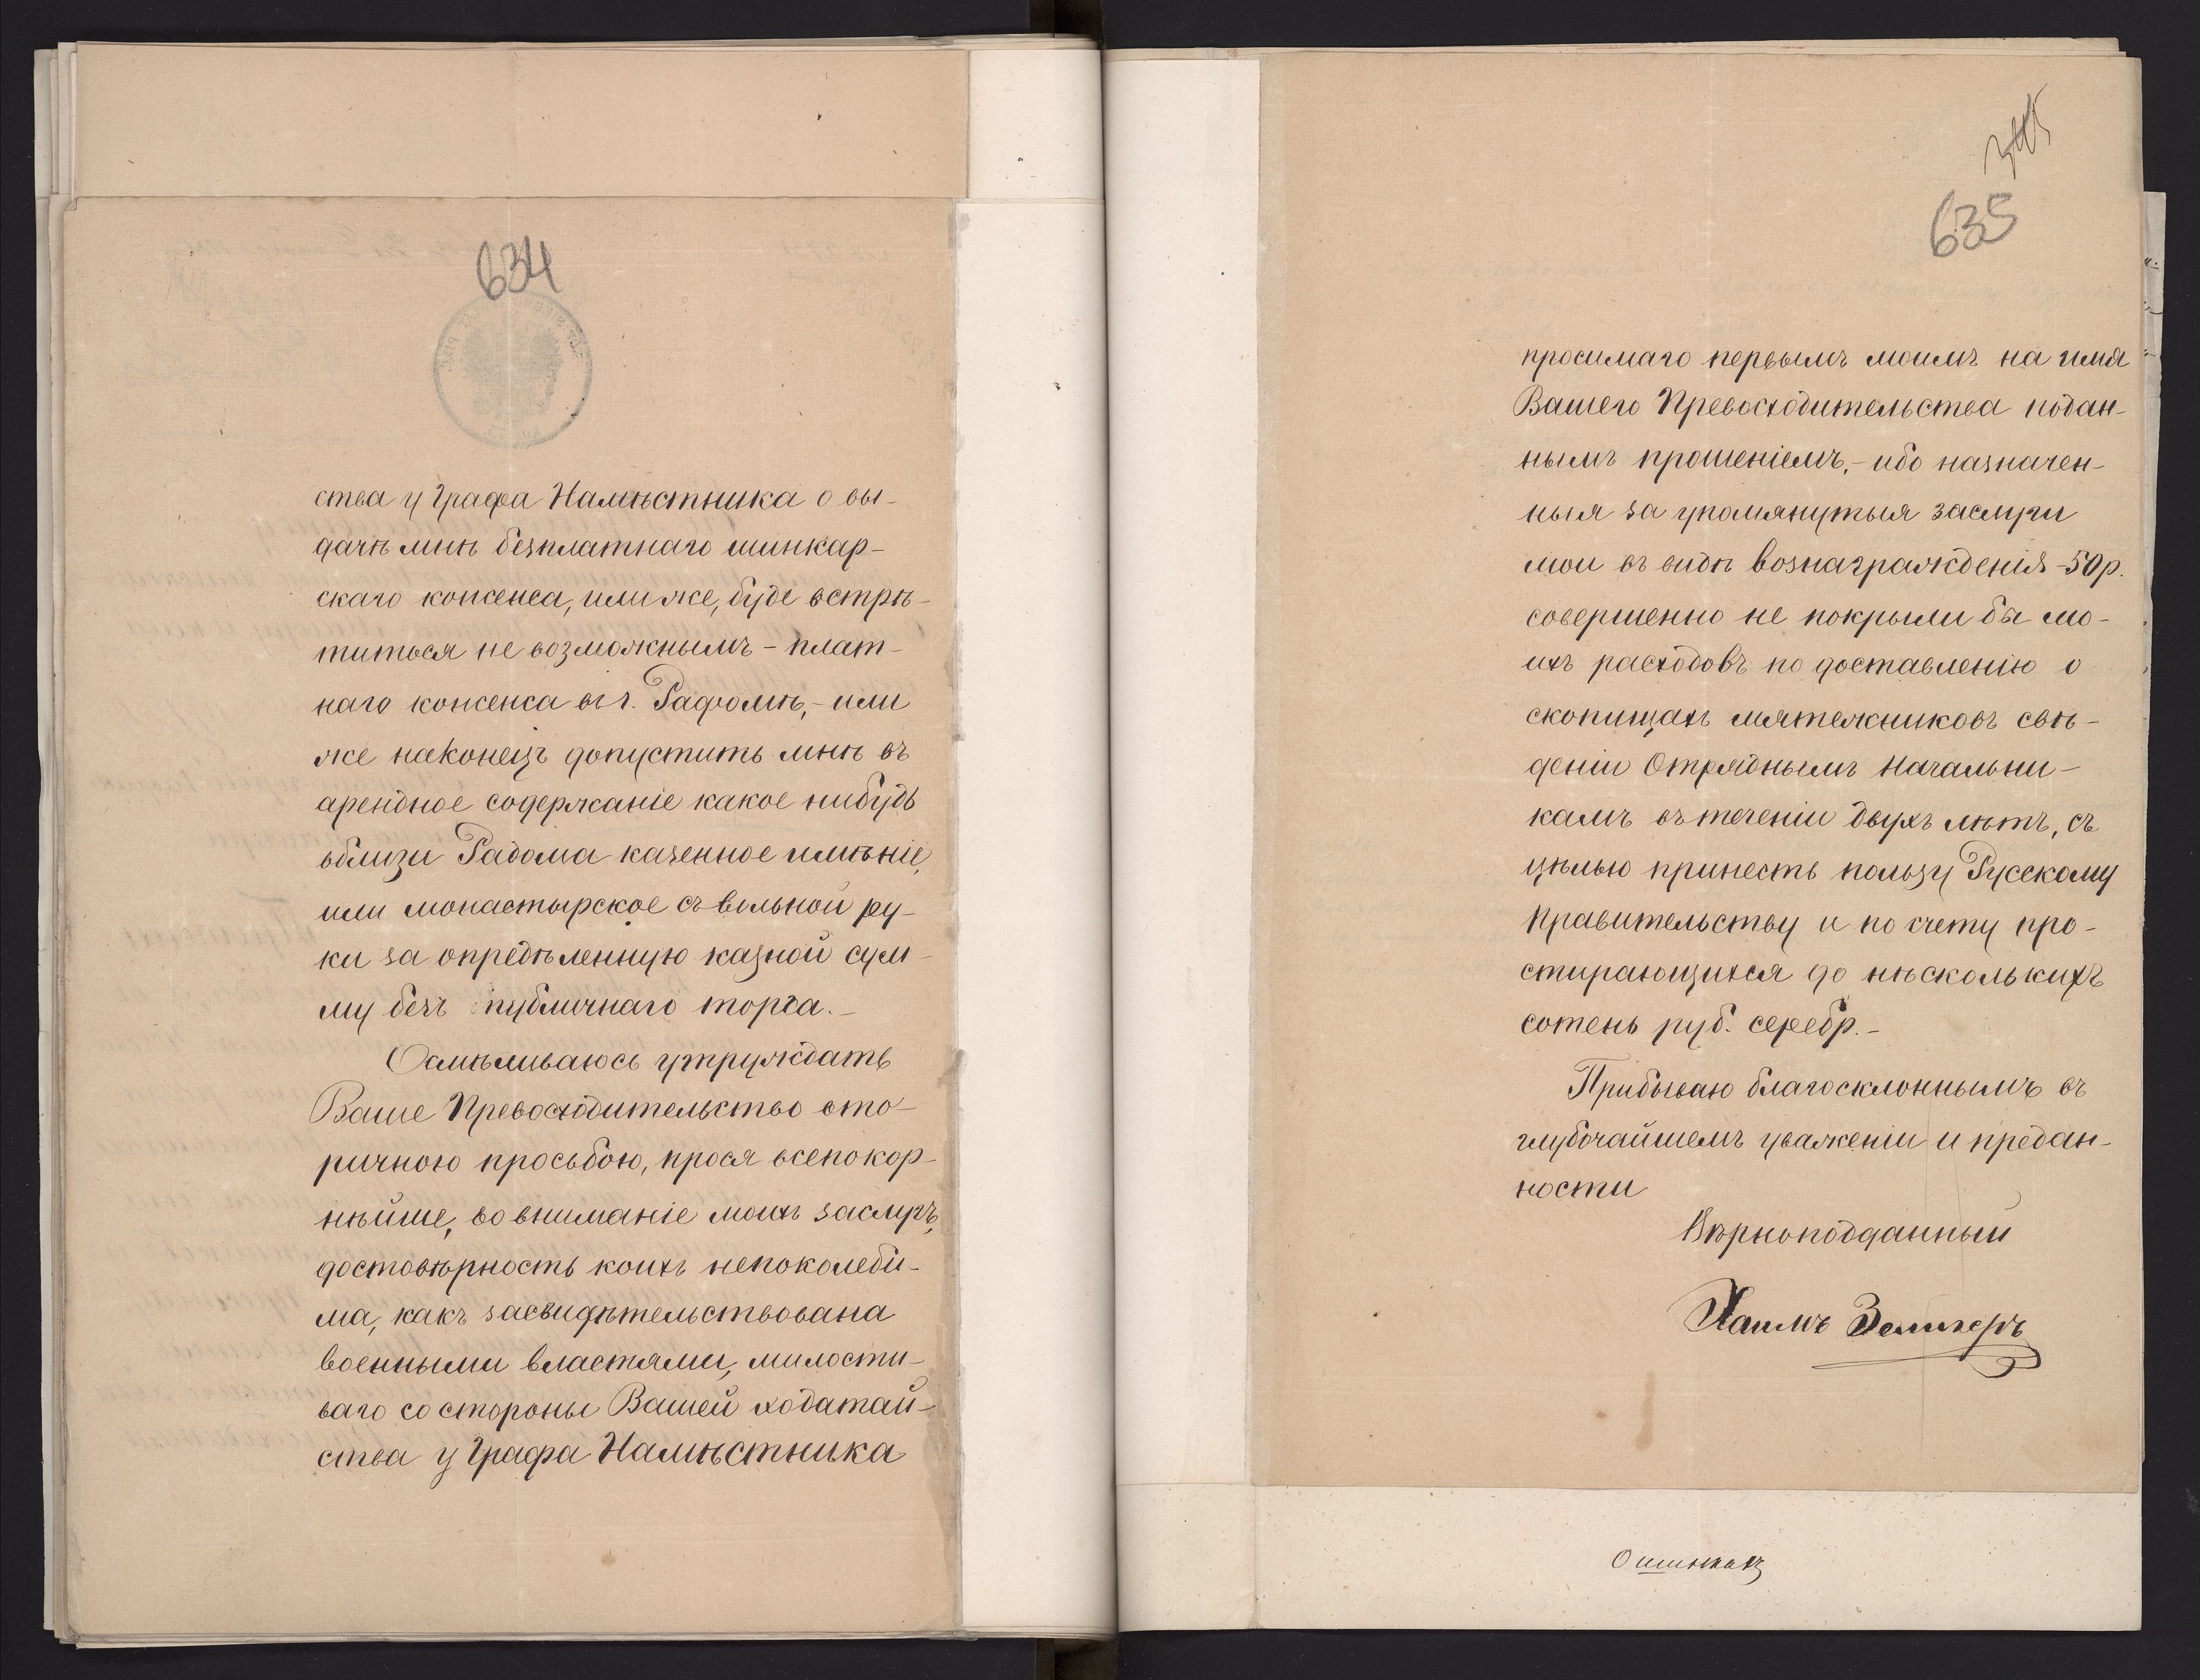 634
ства у Графа Намѣстника о вы-
дачѣ мнѣ безплатнаго шинкар-
скаго консенса, или же, буде встрѣ-
титься не возможнымъ - плат-
наго консенса въ г. Радомѣ, - или
же наконецъ допустить мнѣ въ
арендное содержаніе какое нибудь
вблизи Радома казенное имѣніе,
или монастырское съ вольной ру-
ки за опредѣленную казной сум-
му безъ публичнаго торга. -
Осмѣливаюсь утруждать
Ваше Превосходительство вто-
ричною просьбою, прося всепокор-
нѣйше, во вниманіе моихъ заслугъ,
достовѣрность коихъ непоколеби-
ма, какъ засвидѣтельствована
военными властями, милости-
ваго со стороны Вашей ходатай-
ства у Графа Намѣстника
635
просимаго первымъ моимъ на имя
Вашего Превосходительства подан-
нымъ прошеніемъ, - ибо назначен-
ныя за упомянутыя заслуги
мои въ видѣ вознагражденія - 50 р.
совершенно не покрыли бы мо-
ихъ расходовъ по доставленію о
скопищахъ мятежниковъ свѣ-
деніи Отряднымъ Начальни-
камъ въ теченіи двухъ лѣтъ, съ
цѣлью принесть пользу Русскому
Правительству и по счету про-
стирающихся до нѣсколькихъ
сотень руб. серебр. -
Прибываю благосклоннымъ въ
глубочайшемъ уваженіи и предан-
ности
Вѣрноподданный
Хаимъ Зелигеръ